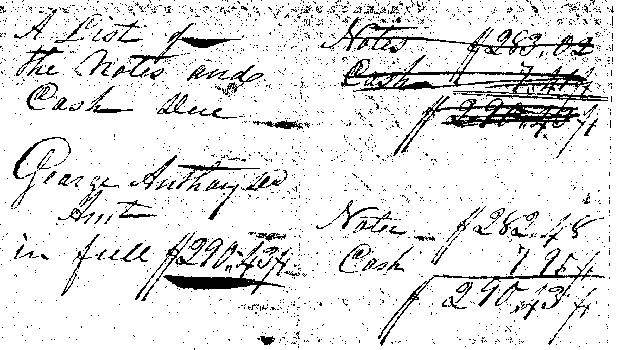 A List of
the Notes and
Cash due
George Anthony
Amt
in full $290.43¼
Notes $283.02
Cash 7.41¼
$290.43¼
Notes $282.48
Cash 7.95¼
$290.43¼